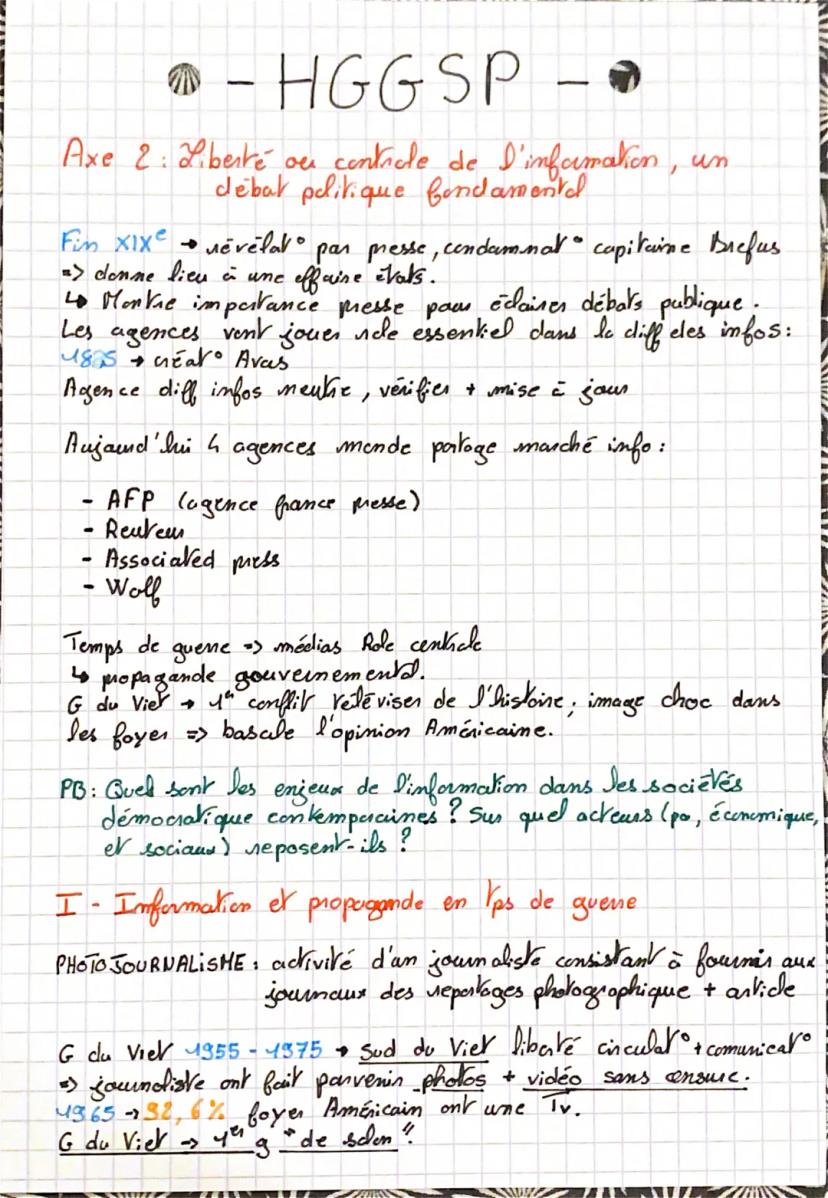 - HGGSP -
Axe 2 : Liberté ou controle de l'information, un
débat politique fondamental
Fin XIXe → révélat° par presse, condamnat° capitaine Drefus
=> donne lieu à une affaire états.
↳ Montre importance presse pour éclairer débats publique.
Les agences vont jouer role essentiel dans la diff des infos :
→ créat° Avas
Agence diff infos neutre, vérifier + mise à jour
Aujourd'hui 4 agences monde partage marché info :
- AFP (agence france presse)
- Reuteur
- Associated press
- Wolf
Temps de guerre => médias Role centrale
↳ propagande gouvernemental.
G du Viet → 1er conflit téléviser de l'histoire ; image choc dans
les foyer => bascule l'opinion Américaine.
PB : Quel sont les enjeux de l'information dans les sociétés
démocratique contemporaines ? Sur quel acteurs (po, économique,
et sociaux) reposent-ils ?
I - Information et propagande en tps de guerre
PHOTOJOURNALISME : activité d'un journaliste consistant à fournir aux
journaux des reportages photographique + article
G du Viet 1955 - 1975 → Sud du Viet liberté circulat° + comunicat°
=> journaliste ont fait parvenir photos + vidéo sans censure.
1965 → 92,6% foyer Américain ont une Tv.
G du Viet → 1er g "de salon".